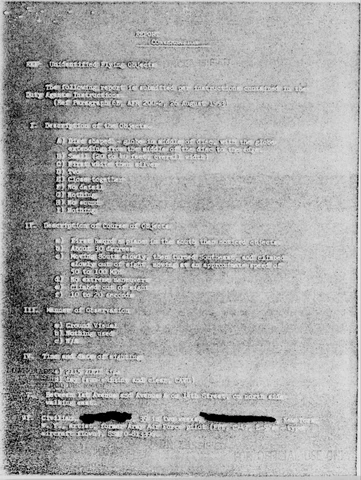 REPORT
REF: Unidentified Flying Objects
The following report is submitted per instructions contained in the
Duty Agents Instructions.
(Ref Paragraph 6B, AFR 200-2, 26 August 1953)
I. Description of the Objects
a) Disc shaped - globe in middle of disc, with the globe
extending from the middle of the disc to the edge.
b) Small (20 to 40 feet overall width)
c) First white then silver
d) Two
e) Close together
f) No detail
g) Nothing
h) No sound
i) Nothing
II. Description of Course of Objects
a) First heard airplane in the south then noticed objects.
b) About 30 degrees
c) Moving South slowly, then turned Southeast, and climbed
slowly out of sight, moving at an approximate speed of
50 to 100 MPH.
d) No extreme maneuvers
e) Climbed out of sight
f) 10 to 20 seconds
III. Manner of Observation
a) Ground Visual
b) Nothing used
c) N/A
IV. Time and Date of Sighting
b) Day (sun shining and clear, CAVU)
V. Between 1st Avenue and Avenue A on 14th Street, on north side
walking east.
VI. Civilian,
N. Y., artist, former Army Air Force pilot
aircraft flown),